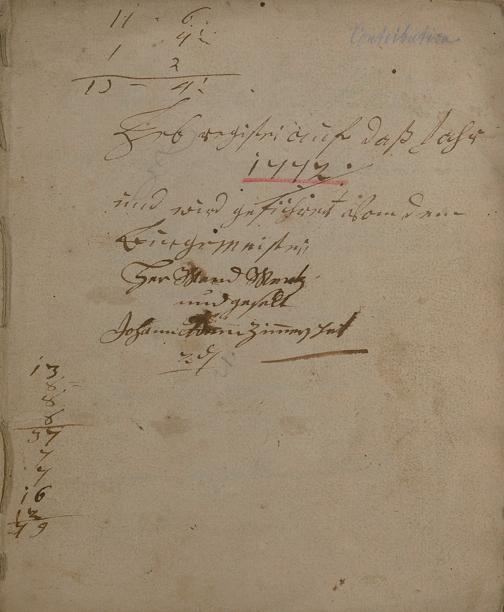 11 - 6
1 4½
2
13 - 4½
Contribution
Heb register auf daß Jahr
1772.
und wird geführet Von dem
Burgermeister
Herr Mertz
und geselt
Johann Zimmer
13
8
8
8
37
7
7
16